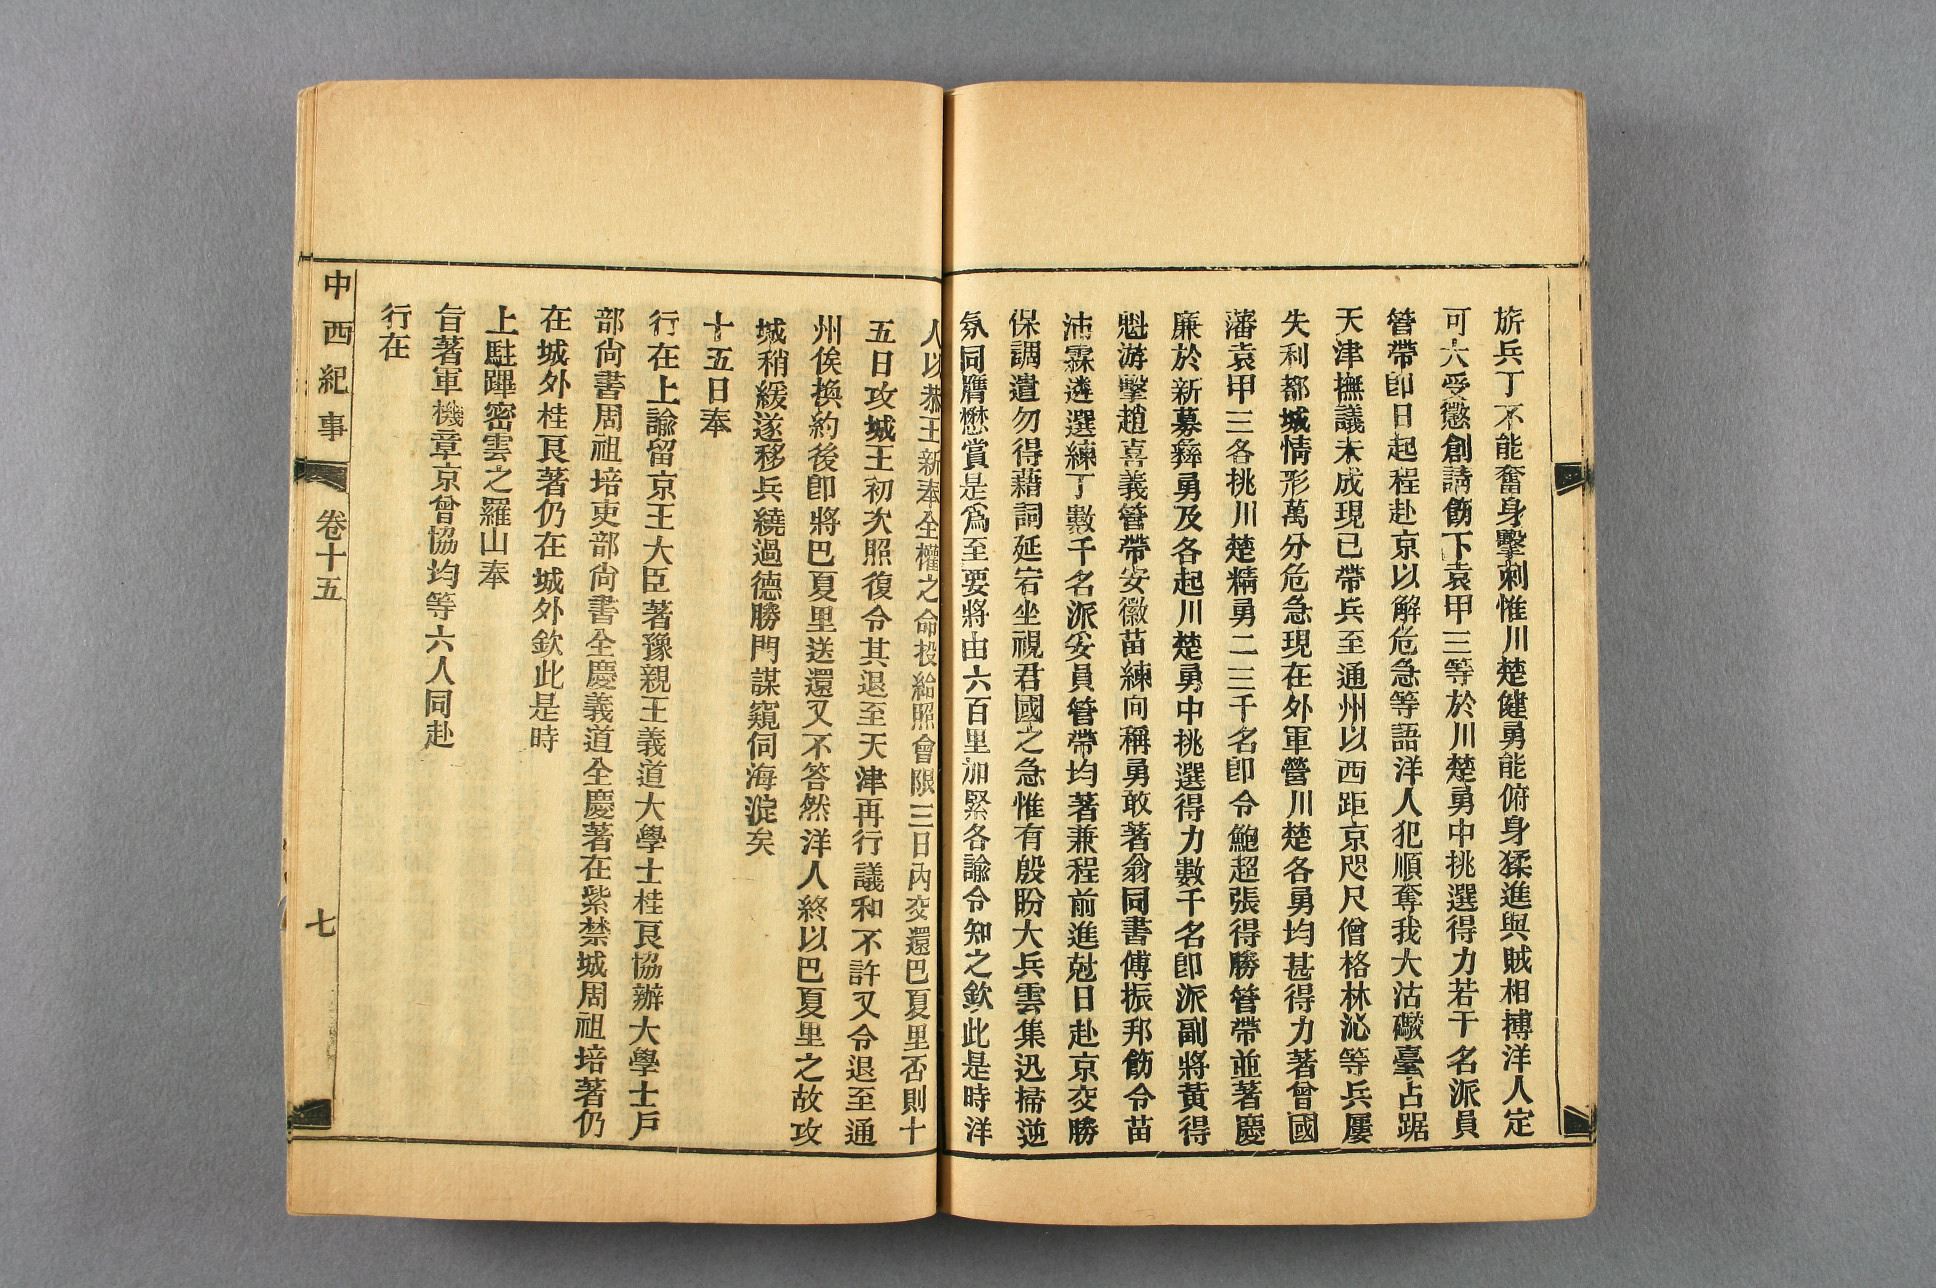 旂兵丁不能奮身擊刺惟川楚健勇能俯身猱進與賊相搏洋人定
可大受懲創請飭下袁甲三等於川楚勇中挑選得力若干名派員
管帶卽日起程赴京以解危急等語洋人犯順奪我大沽礮臺占踞
天津撫議未成現已帶兵至通州以西距京咫尺僧格林沁等兵屢
失利都城情形萬分危急現在外軍營川楚各勇均甚得力著曾國
藩袁甲三各挑川楚精勇二三千名卽令鮑超張得勝管帶並著慶
廉於新募彝勇及各起川楚勇中挑選得力數千名卽派副將黃得
魁游擊趙喜義管帶安徽苗練向稱勇敢著翁同書傅振邦飭令苗
沛霖遴選練丁數千名派妥員管帶均著兼程前進尅日赴京交勝
保調遣勿得藉詞延宕坐視君國之急惟有殷盼大兵雲集迅掃逆
氛同膺懋賞是爲至要將由六百里加緊各諭令知之欽此是時洋
人以恭王新奉全權之命投給照會限三日內交還巴夏里否則十
五日攻城王初次照復令其退至天津再行議和不許又令退至通
州俟換約後卽將巴夏里送還又不答然洋人終以巴夏里之故攻
城稍緩遂移兵繞過德勝門謀窺伺海淀矣
十五日奉
行在上諭留京王大臣著豫親王義道大學士桂良協辦大學士戶
部尙書周祖培吏部尙書全慶義道全慶著在紫禁城周祖培著仍
在城外桂良著仍在城外欽此是時
上駐蹕密雲之羅山奉
旨著軍機章京曾協均等六人同赴
行在
中西紀事 卷十五 七